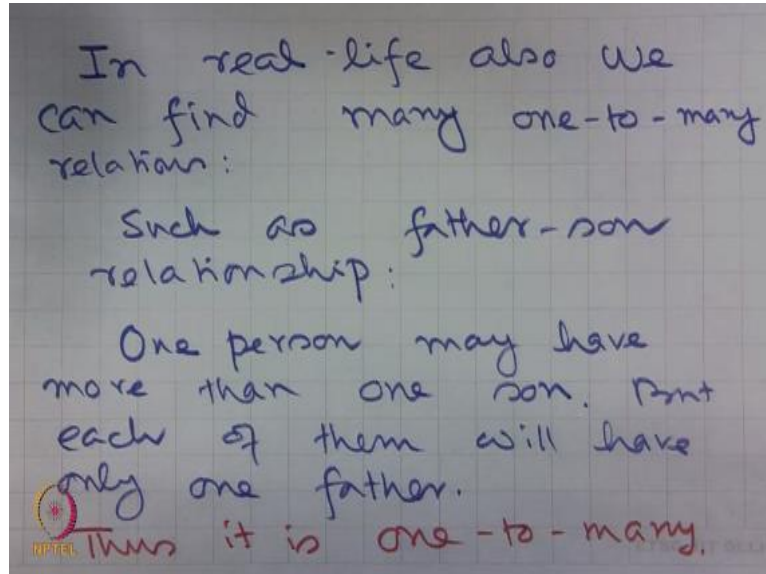 In real-life also we
can find many one-to-many
relation:
Such as father-son
relationship:
One person may have
more than one son. But
each of them will have
only one father.
NPTEL Thus it is one-to-many.